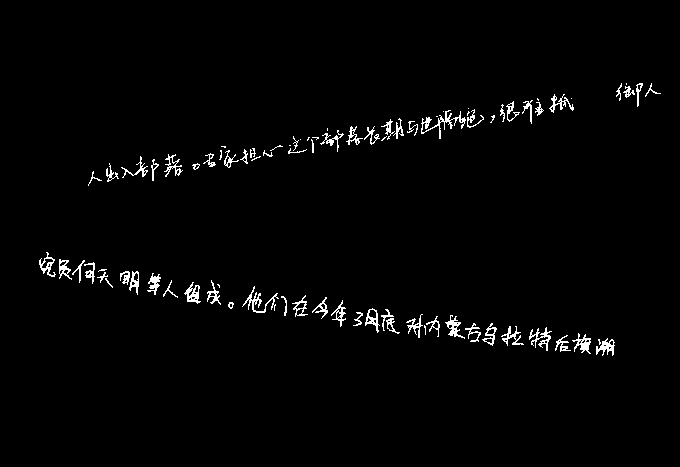 人出入部落。专家担心这个部落长期与世隔绝，很难抵 御人
究员何天明等人组成。他们在今年3月底对内蒙古乌拉特后旗潮